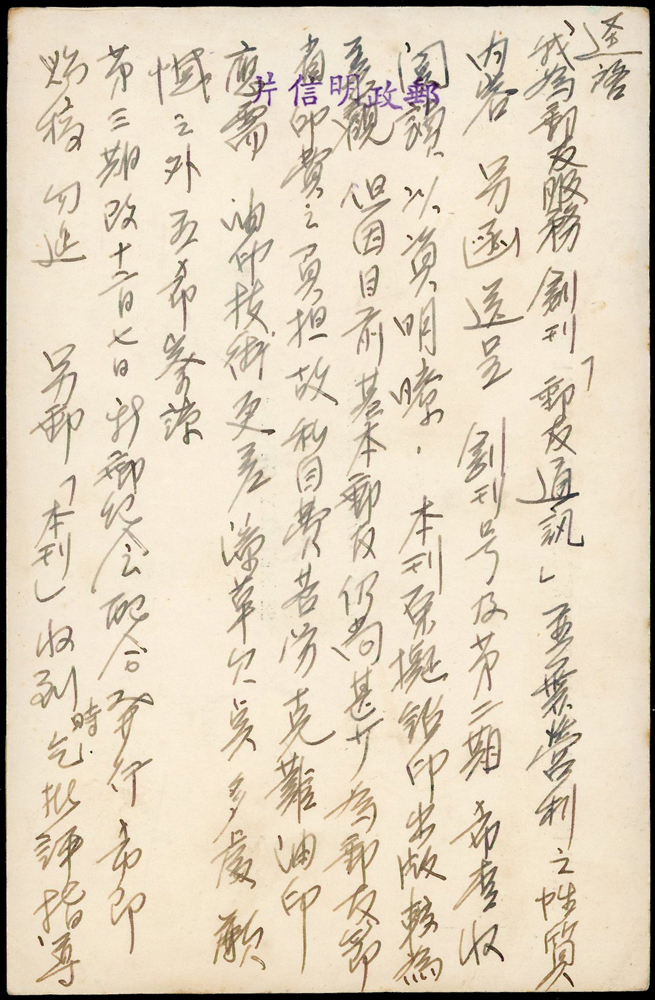 逕啟
「我為郵友服務 創刊「郵友通訊」並無營利之性質
內容 另函送呈 創刊号及第二期 希查收
閱讀以資明瞭. 本刊原擬鉛印出版較為
美觀 但因目前基本郵友仍尚甚少為郵友節
省印費之負担故私自費苦勞克難油印
應需 油印技術更差潦草欠美多處 歉
憾之外 五希參諒
第三期改十二月七日新郵纪念配合發行 希即
賜稿 勿延 另郵「本刊」收到時乞批評指導
郵政明信片